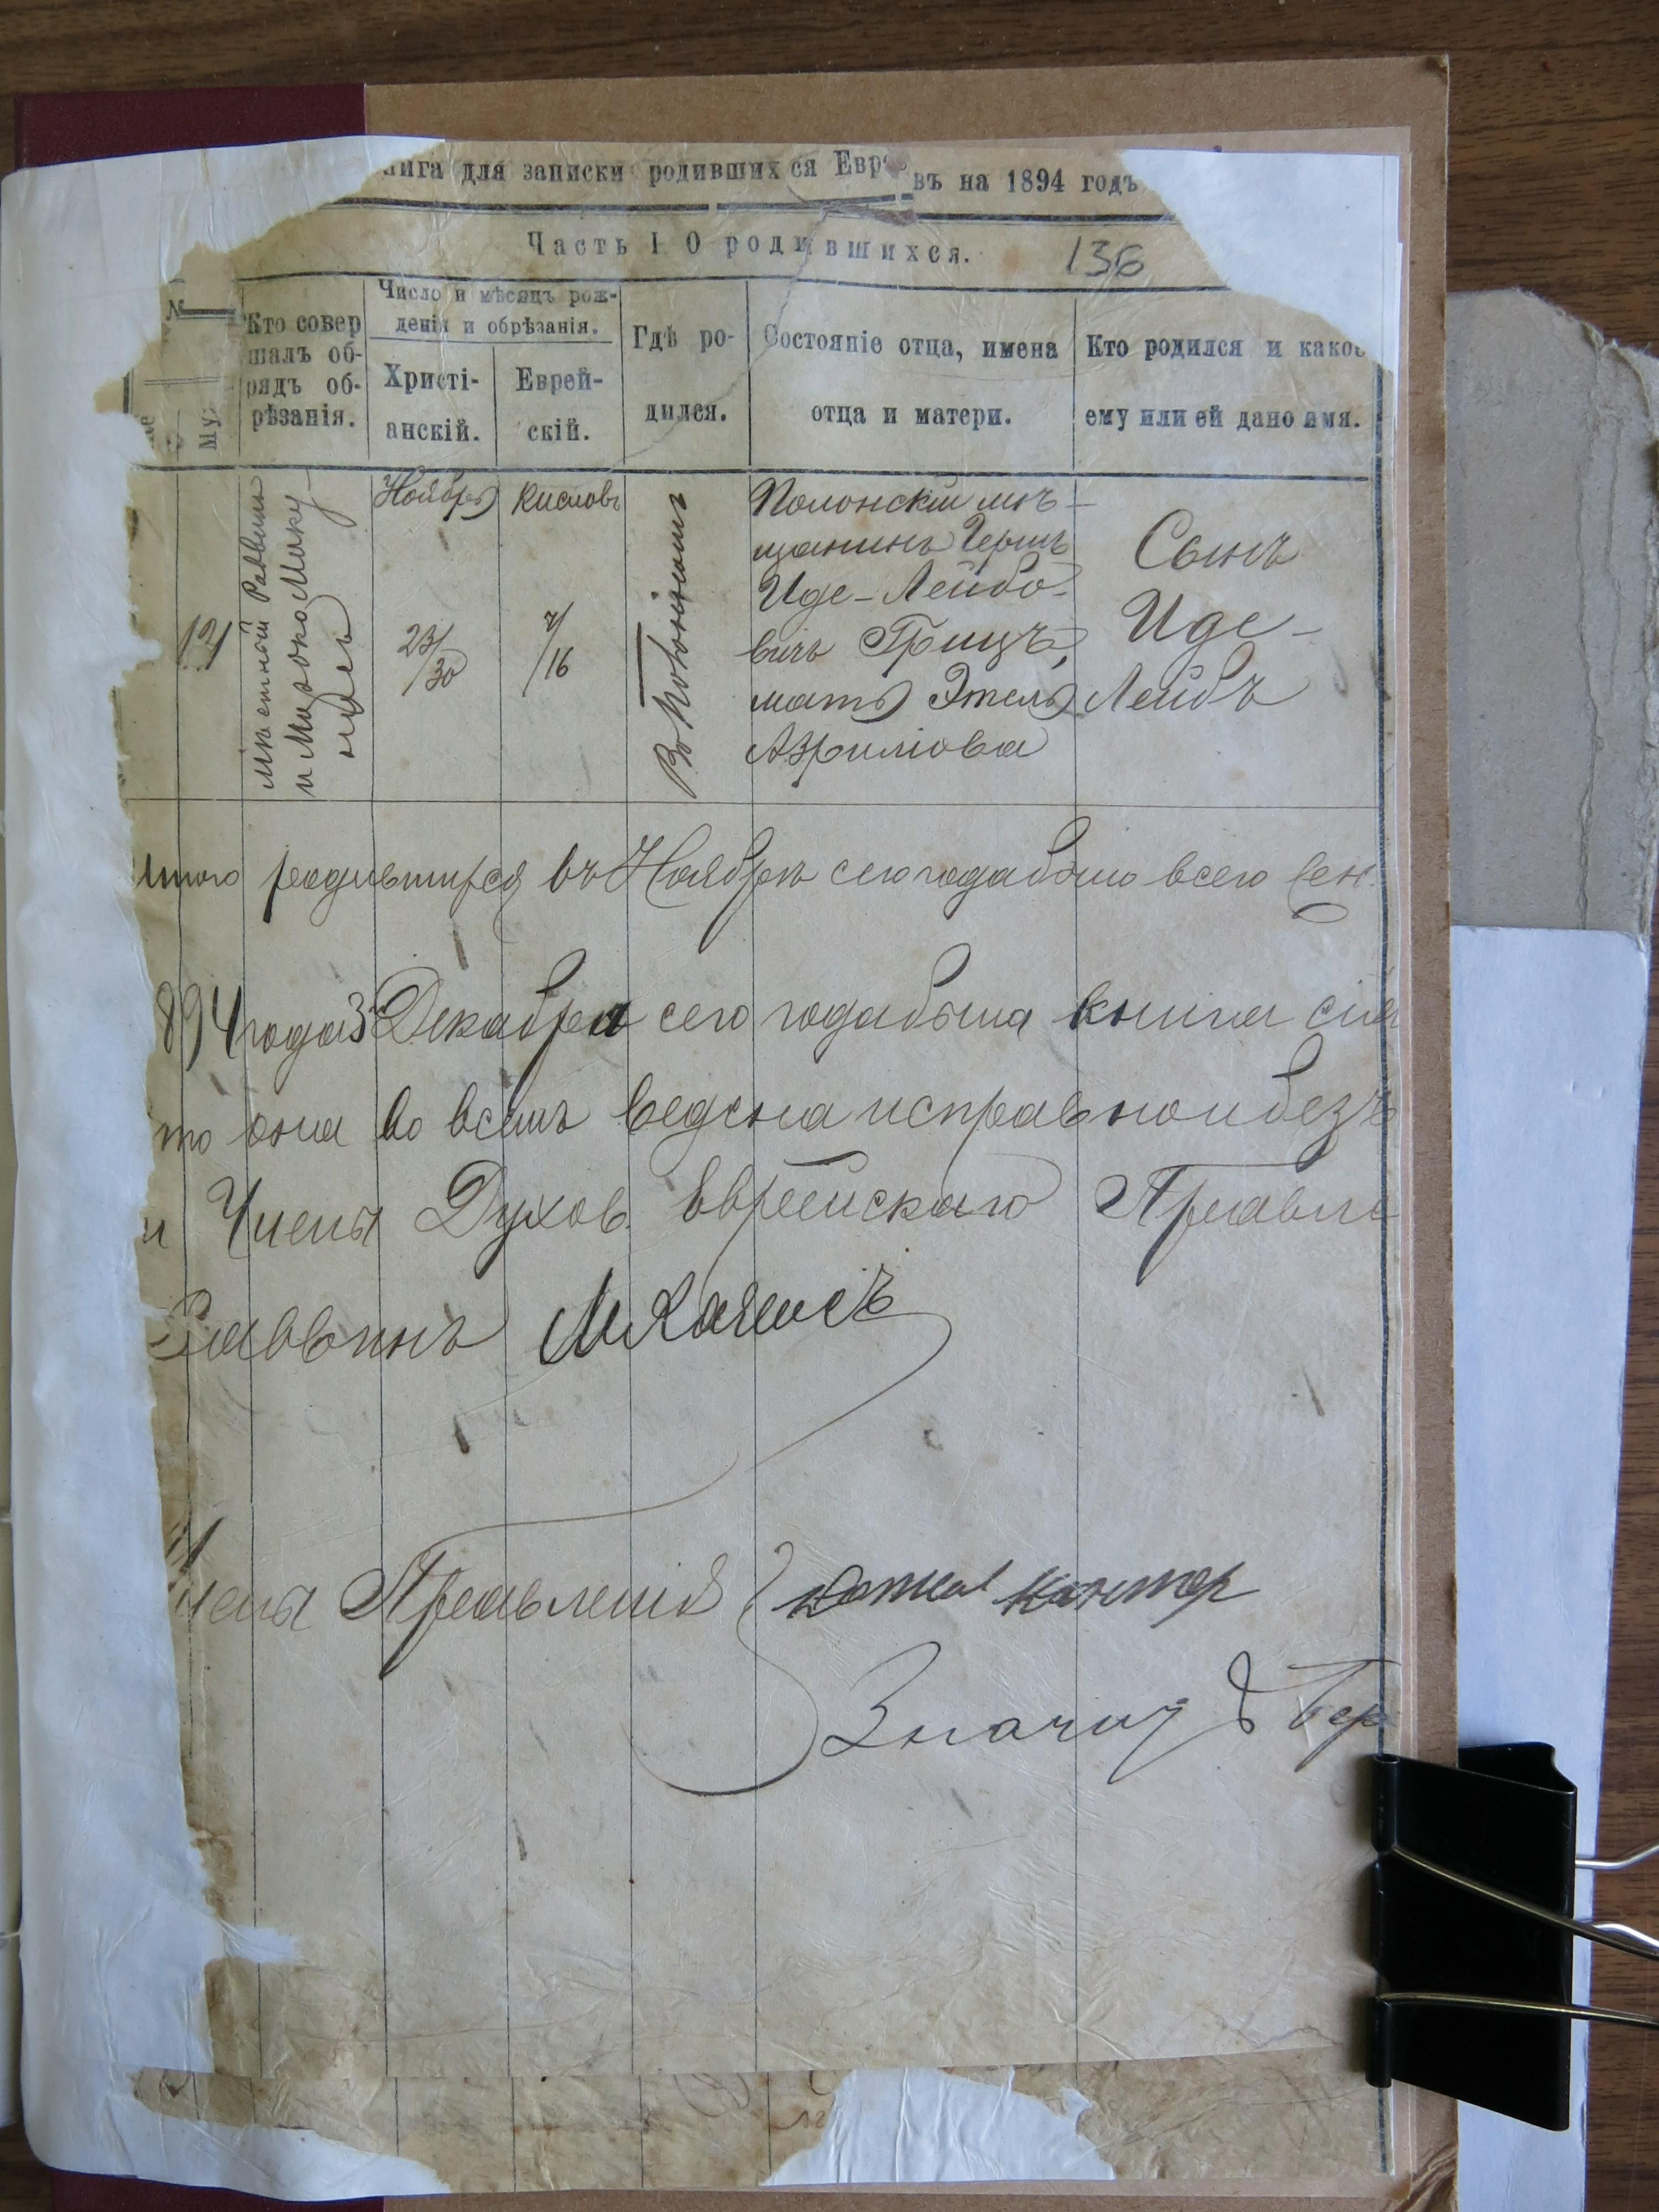 нига для записки родившихся Евр въ на 1894 годъ
Часть I О родившихся.
136
№
Му
Кто совер
шалъ об-
рядъ об-
рѣзанія.
Число и мѣсяцъ рож-
денія и обрѣзанія.
Христі-
анскій.
Еврей-
скій.
Гдѣ ро-
дился.
Состояніе отца, имена
отца и матери.
Кто родился и какое
ему или ей дано имя.
Мѣстный Раввинъ
и
Ноябрь
23/30
Кисловъ
7/16
Въ
Полонскій мѣ-
щанинъ Гершъ
Иде-Лейбо-
вичъ Грицъ,
мать Этель
Азриліова
Сынъ
Иде-
Лейбъ
родившихся въ Ноябрѣ сего года было всего
894 года 3 Декабря сего года была книга сія
то она во всемъ ведена исправно и безъ
и Члены Духов. Еврейскаго Правле
Раввинъ
лены Правленія Кантор